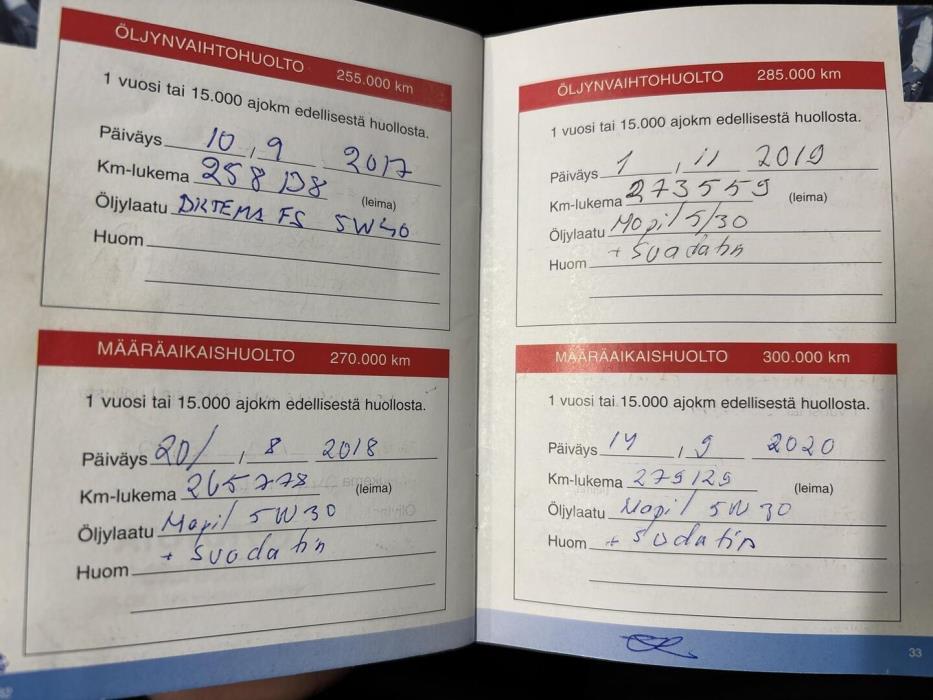 ÖLJYNVAIHTOHUOLTO 255.000 km
1 vuosi tai 15.000 ajokm edellisestä huollosta.
Päiväys 10 , 9 2017
Km-lukema 258 128 (leima)
Öljylaatu BILTEMA FS 5W40
Huom
MÄÄRÄAIKAISHUOLTO 270.000 km
1 vuosi tai 15.000 ajokm edellisestä huollosta.
Päiväys 20/ , 8 2018
Km-lukema 265778 (leima)
Öljylaatu Mopil 5W30
+ suodatin
Huom
ÖLJYNVAIHTOHUOLTO 285.000 km
1 vuosi tai 15.000 ajokm edellisestä huollosta.
Päiväys 1 , 11 2019
Km-lukema 273559 (leima)
Öljylaatu Mopil 5/30
Huom + Suodatin
MÄÄRÄAIKAISHUOLTO 300.000 km
1 vuosi tai 15.000 ajokm edellisestä huollosta.
Päiväys 14 , 9 2020
Km-lukema 279129 (leima)
Öljylaatu Mopil 5W30
Huom + Sudatin
33